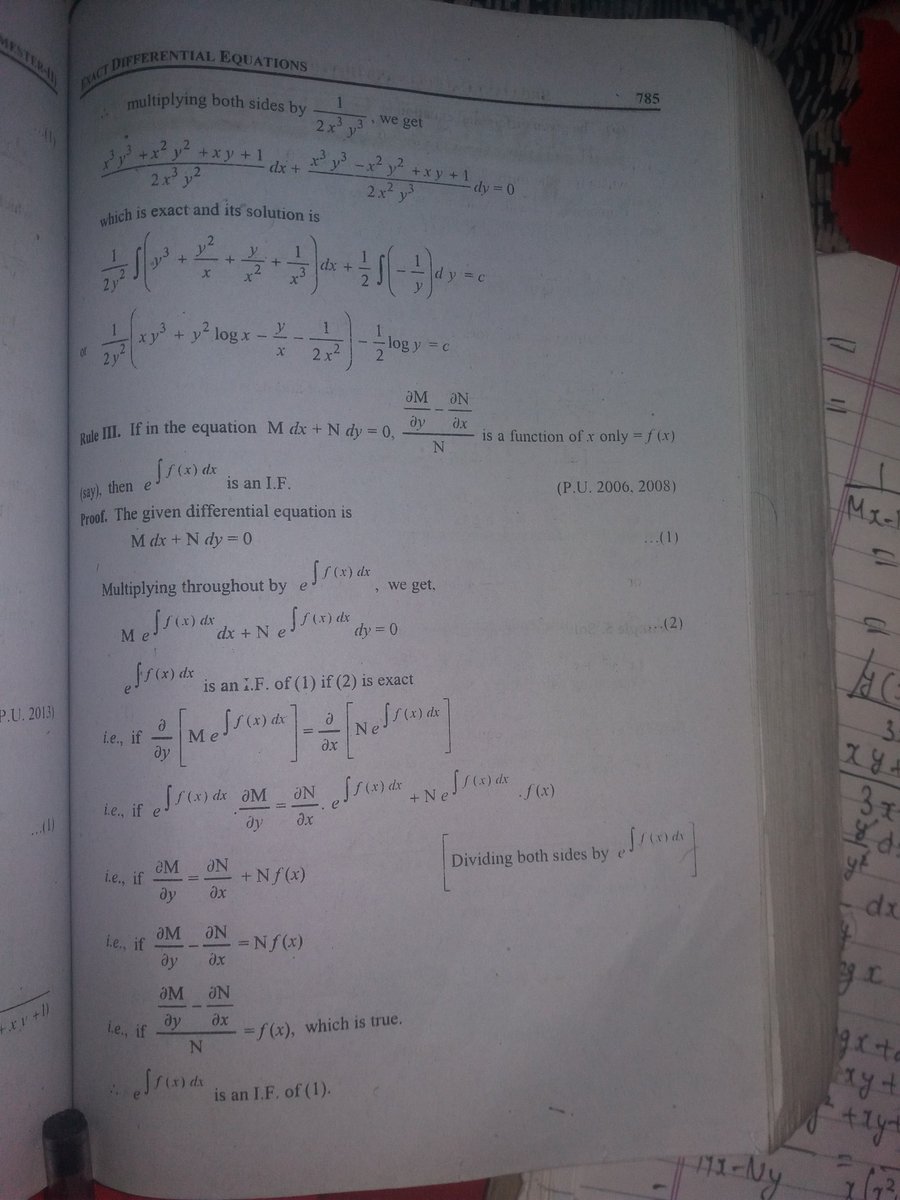 EXACT DIFFERENTIAL EQUATIONS
785
∴ multiplying both sides by 1/(2x³ y³), we get
(x³y³ + x² y² + x y + 1)/(2x³ y²) dx + (x³ y³ − x² y² + x y + 1)/(2x² y³) dy = 0
which is exact and its solution is
1/(2y²) ∫ (y³ + y²/x + y/x² + 1/x³) dx + 1/2 ∫ (− 1/y) d y = c
or 1/(2y²) (x y³ + y² log x − y/x − 1/(2 x²)) − 1/2 log y = c
Rule III. If in the equation M dx + N dy = 0, (∂M/∂y − ∂N/∂x)/N is a function of x only = f (x)
(say), then e^∫ f (x) dx is an I.F. (P.U. 2006, 2008)
Proof. The given differential equation is
M dx + N dy = 0 ...(1)
Multiplying throughout by e^∫ f (x) dx, we get,
M e^∫ f (x) dx dx + N e^∫ f (x) dx dy = 0 ...(2)
e^∫ f (x) dx is an I.F. of (1) if (2) is exact
i.e., if ∂/∂y [M e^∫ f (x) dx] = ∂/∂x [N e^∫ f (x) dx]
i.e., if e^∫ f (x) dx . ∂M/∂y = ∂N/∂x . e^∫ f (x) dx + N e^∫ f (x) dx . f (x)
[Dividing both sides by e^∫ f (x) dx]
i.e., if ∂M/∂y = ∂N/∂x + N f (x)
i.e., if ∂M/∂y − ∂N/∂x = N f (x)
i.e., if (∂M/∂y − ∂N/∂x)/N = f (x), which is true.
∴ e^∫ f (x) dx is an I.F. of (1).
P.U. 2013)
...(1)
+ x y + 1)
Mx-Ny